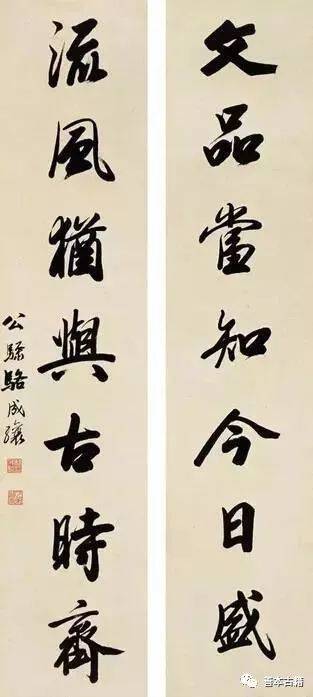 文品當知今日盛
流風猶與古時齊
公驌駱成驤
善本古籍